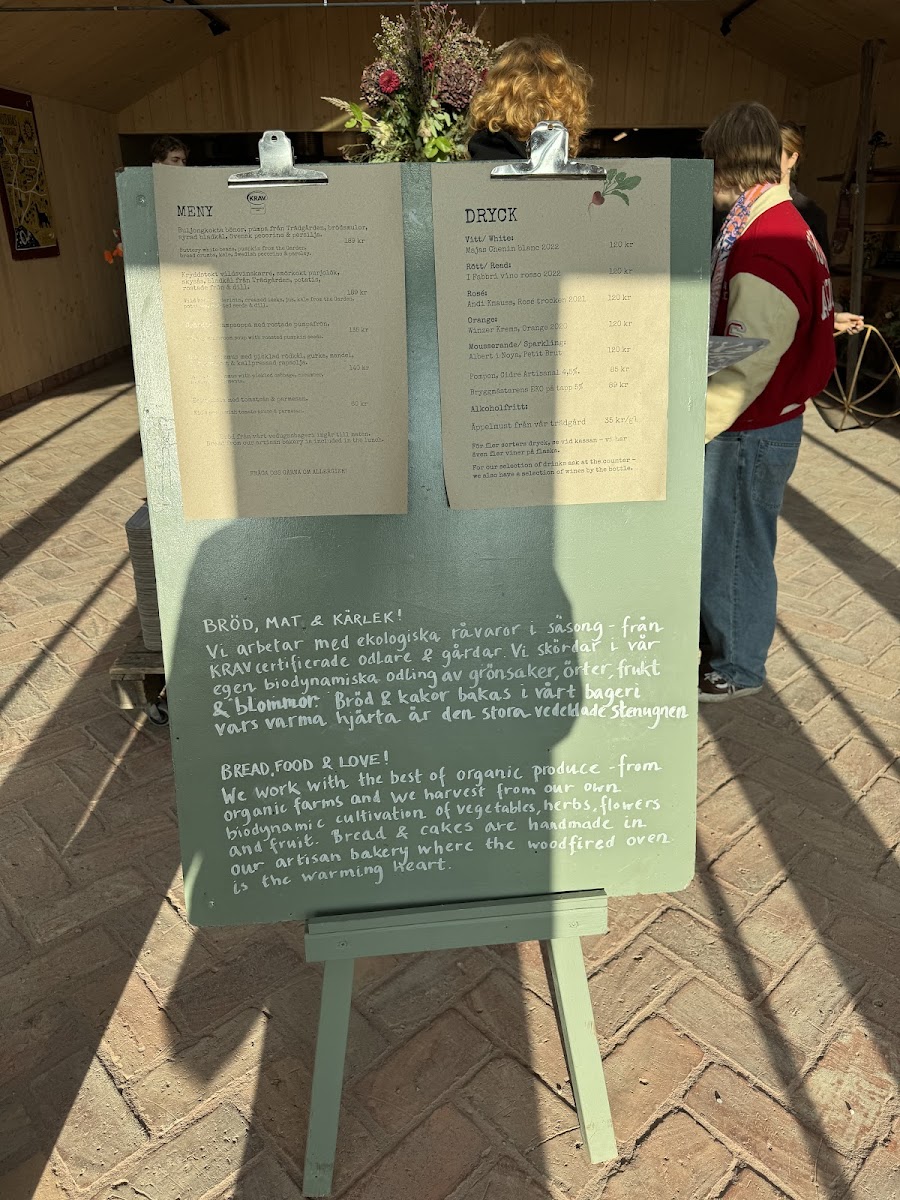 KRAV
MENY
Buljongkokta bönor, pumpa från Trädgården, brödsmulor,
syrad bladkål, Svensk pecorino & persilja.
189 kr
Buttery white beans, pumpkin from the Garden,
bread crumbs, kale, Swedish pecorino & parsley.
Kryddstekt vildsvinskarré, smörstekt purjolök,
bladkål från Trädgården, potatis,
rostade frön & dill.
189 kr
med rostade pumpafrön.
135 kr
med picklad rödkål, gurka, mandel,
& kallpressad rapsolja.
140 kr
med tomatsås & parmesan.
90 kr
ingår till maten.
from our artisan bakery is included in the lunch.
FRÅGA OSS GÄRNA OM ALLERGIER!
DRYCK
Vitt/ White:
Majas Chenin blanc 2022 120 kr
Rött/ Read:
I Fabbri vino rosso 2022 120 kr
Rosé:
Andi Knauss, Rosé trocken 2021 120 kr
Orange:
Winzer Krems, Orange 2020 120 kr
Mousserande/ Sparkling:
Albert i Noya, Petit Brut 120 kr
Pompon, Cidre Artisanal 4,5%. 85 kr
Bryggmästarens EKO på tapp 5% 89 kr
Alkoholfritt:
Äppelmust från vår trädgård 35 kr/gl
För fler sorters dryck, se vid kassan - vi har
även fler viner på flaska.
For our selection of drinks ask at the counter -
we also have a selection of wines by the bottle.
BRÖD, MAT & KÄRLEK!
Vi arbetar med ekologiska råvaror i säsong - från
KRAVcertifierade odlare & gårdar. Vi skördar i vår
egen biodynamiska odling av grönsaker, örter, frukt
& blommor. Bröd & kakor bakas i vårt bageri
vars varma hjärta är den stora vedeldade stenugnen
BREAD, FOOD & LOVE!
We work with the best of organic produce - from
organic farms and we harvest from our own
biodynamic cultivation of vegetables, herbs, flowers
and fruit. Bread & cakes are handmade in
our artisan bakery where the woodfired oven
is the warming heart.